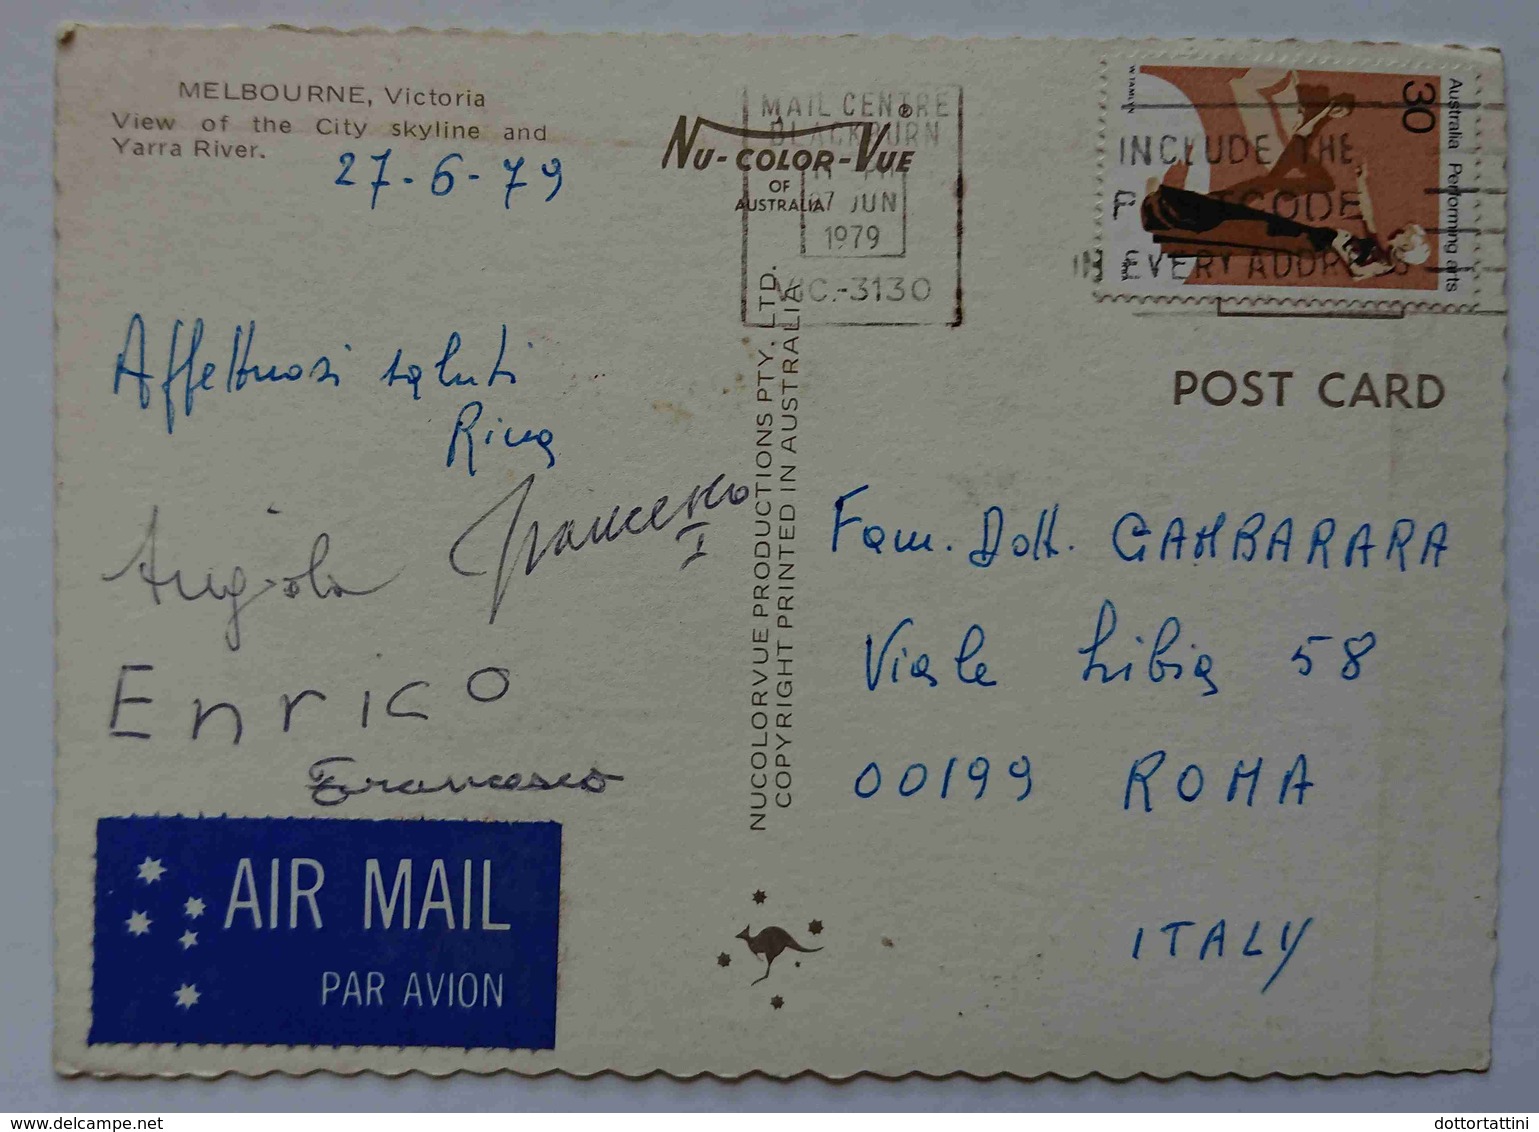 MELBOURNE, Victoria
View of the City skyline and
Yarra River.
27-6-79
Affettuosi saluti
Rina
Angiola
Francesco
I
Enrico
Francesco
AIR MAIL
PAR AVION
NU-COLOR-VUE®
OF
AUSTRALIA
MAIL CENTRE
BLACKBURN
27 JUN
1979
VIC.-3130
NUCOLORVUE PRODUCTIONS PTY. LTD.
COPYRIGHT PRINTED IN AUSTRALIA
30
Australia Performing arts
INCLUDE THE
POSTCODE
IN EVERY ADDRESS
POST CARD
Fam. Dott. GAMBARARA
Viale Libia 58
00199 ROMA
ITALY
dottortattini